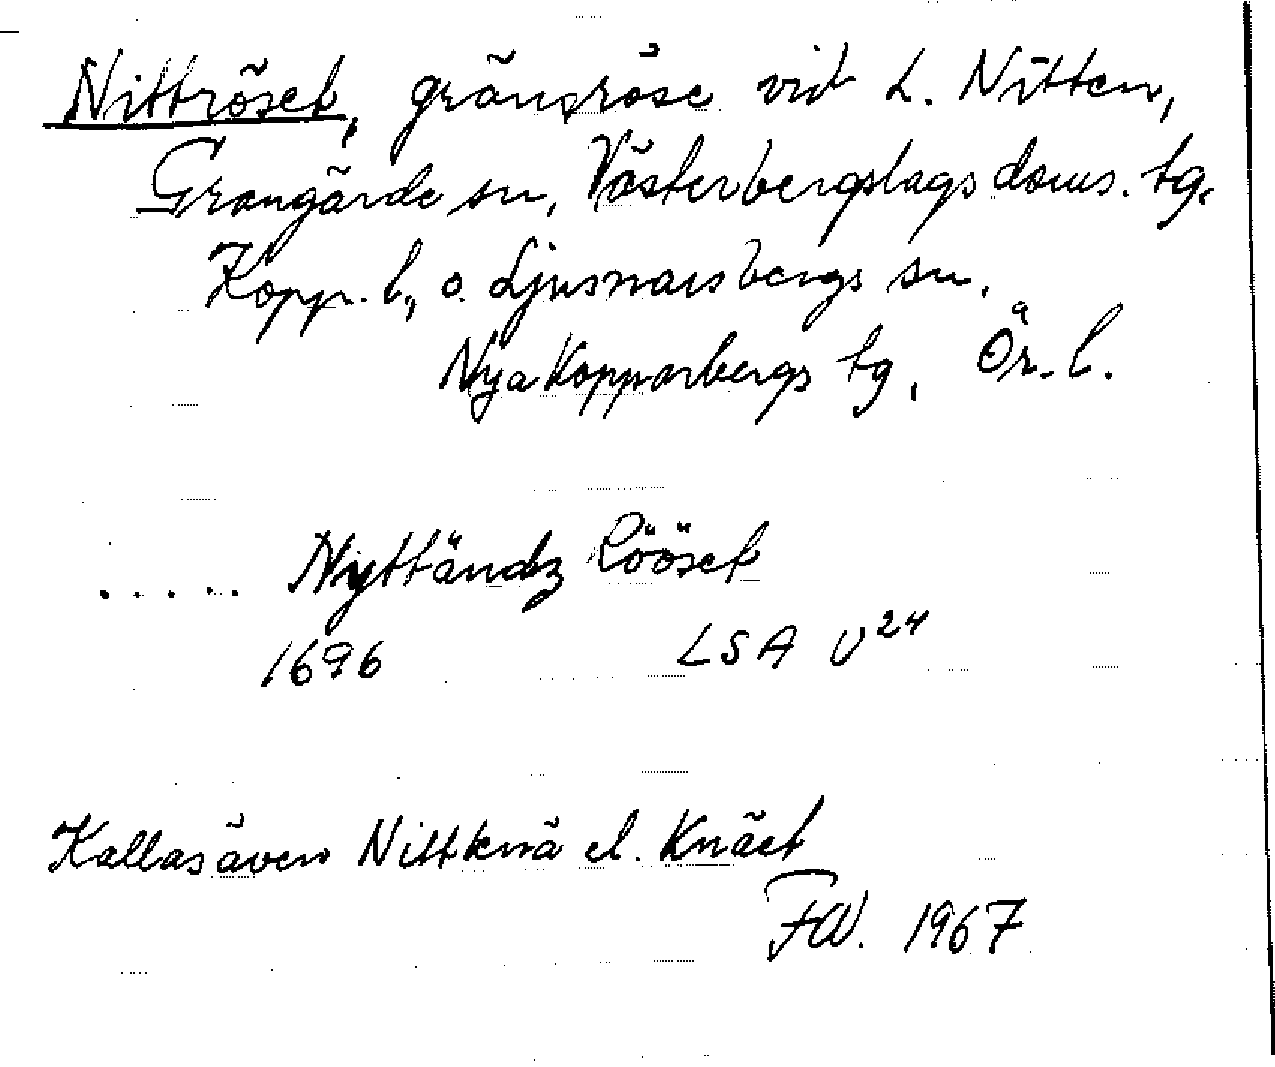 Nittröset, gränsröse vid L. Nitten,
Grangärde sn, Västerbergslags doms. tg.
Kopp. l., o. Ljusnarsbergs sn.
Nya Kopparbergs tg, Ör. l.
. . . . . Nyttändz Rööset
1696 LSA U24
Kallas även Nittknä el. Knäet
FW. 1967